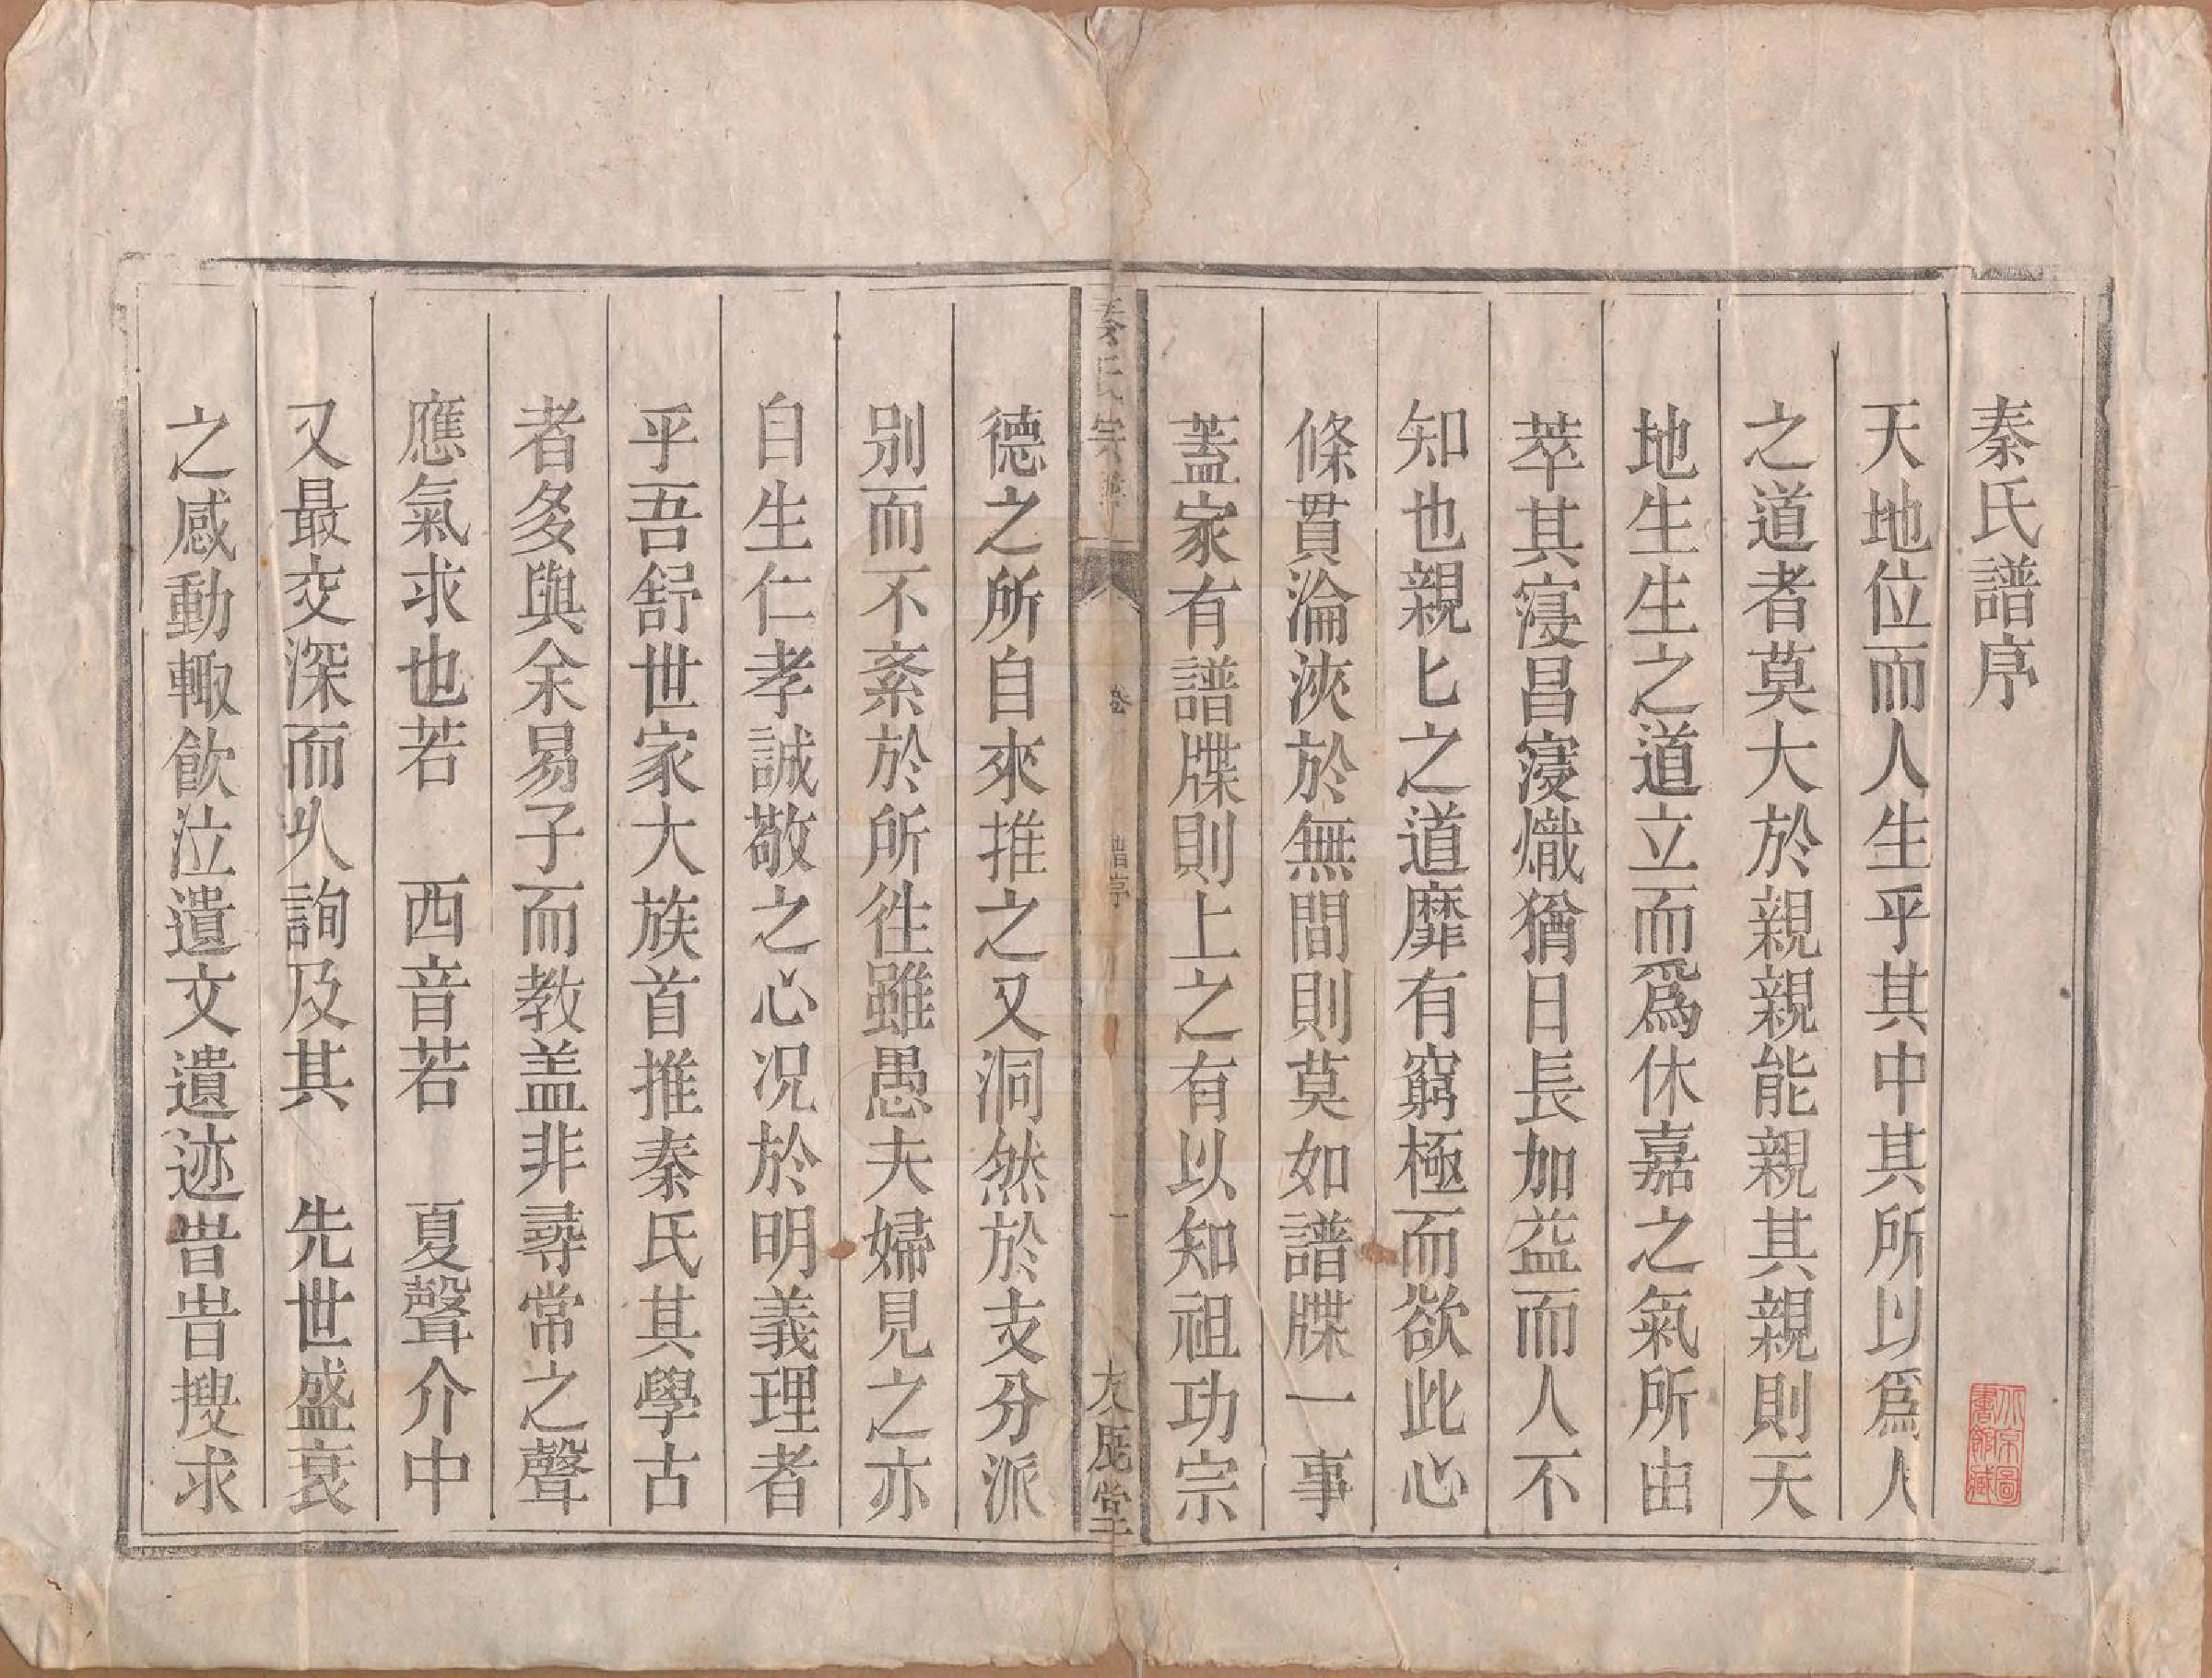 秦氏譜序
天地位而人生乎其中其所以爲人
之道者莫大於親親能親其親則天
地生生之道立而爲休嘉之氣所由
萃其寖昌寖熾猶日長加益而人不
知也親匕之道靡有窮極而欲此心
條貫淪浹於無間則莫如譜牒一事
蓋家有譜牒則上之有以知祖功宗
秦氏宗譜
卷一
譜序
一
友鹿堂
德之所自來推之又洞然於支分派
别而不紊於所徃雖愚夫婦見之亦
自生仁孝誠敬之心况於明義理者
乎吾舒世家大族首推秦氏其學古
者多與余易子而教盖非尋常之聲
應氣求也若 西音若 夏聲介中
又最交深而乆詢及其 先世盛衰
之感動輙飲泣遺文遺迹旹旹搜求
北京圖
書館藏